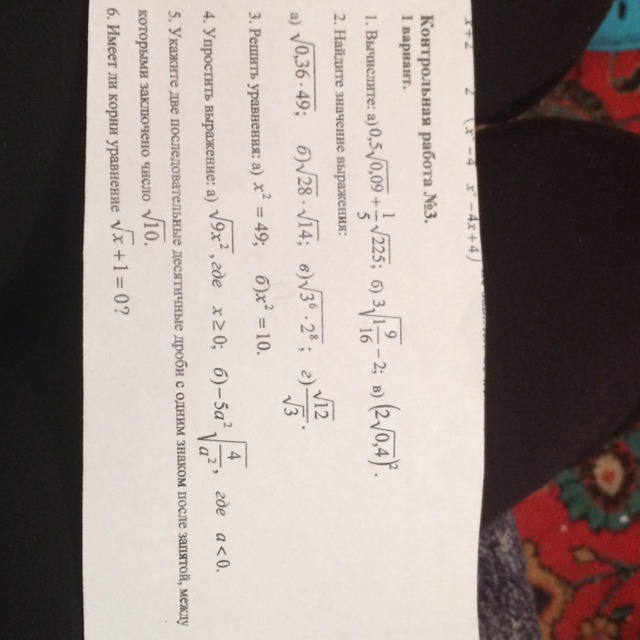 x+2 2 (x²−4 x²−4x+4)
Контрольная работа №3.
1 вариант.
1. Вычислите: а) 0,5√0,09 + 1/5 √225; б) 3√(1 9/16) − 2; в) (2√0,4)².
2. Найдите значение выражения:
а) √(0,36 · 49); б) √28 · √14; в) √(3⁶ · 2⁸); г) √12/√3.
3. Решить уравнения: а) x² = 49; б) x² = 10.
4. Упростить выражение: а) √(9x²), где x ≥ 0; б) −5a²√(4/a²), где a < 0.
5. Укажите две последовательные десятичные дроби с одним знаком после запятой, между
которыми заключено число √10.
6. Имеет ли корни уравнение √x + 1 = 0?